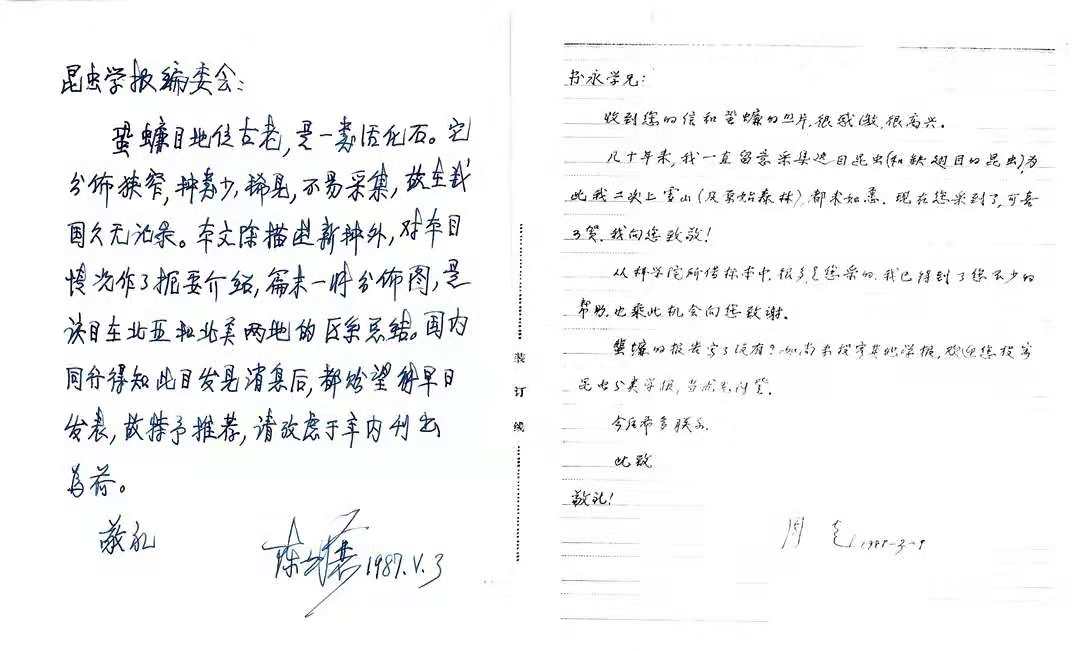 昆虫学报编委会：
蛩蠊目地位古老，是一类活化石。它
分布狭窄，种类少，稀见，不易采集，故在我
国久无记录。本文除描述新种外，对本目
情况作了扼要介绍，篇末一帧分布图，是
该目在北亚和北美两地的区系总结。国内
同行得知此目发见消息后，都盼望能早日
发表，故特予推荐，请考虑于年内刊出
为荷。
敬礼
1987.V.3
装
订
线
书永学兄：
收到您的信和蛩蠊的照片，很感激，很高兴。
几十年来，我一直留意采集这目昆虫(和缺翅目的昆虫)，为
此我二次上雪山(及原始森林)，都未如愿。现在您采到了，可喜
可贺，我向您致敬！
从科学院所借标本中，很多是您采的，我已得到了您不少的
帮助，也乘此机会向您致谢。
蛩蠊的报告写了没有？如尚未投寄其他学报，欢迎您投寄
昆虫分类学报，
今后希多联系。
此致
敬礼！
周尧